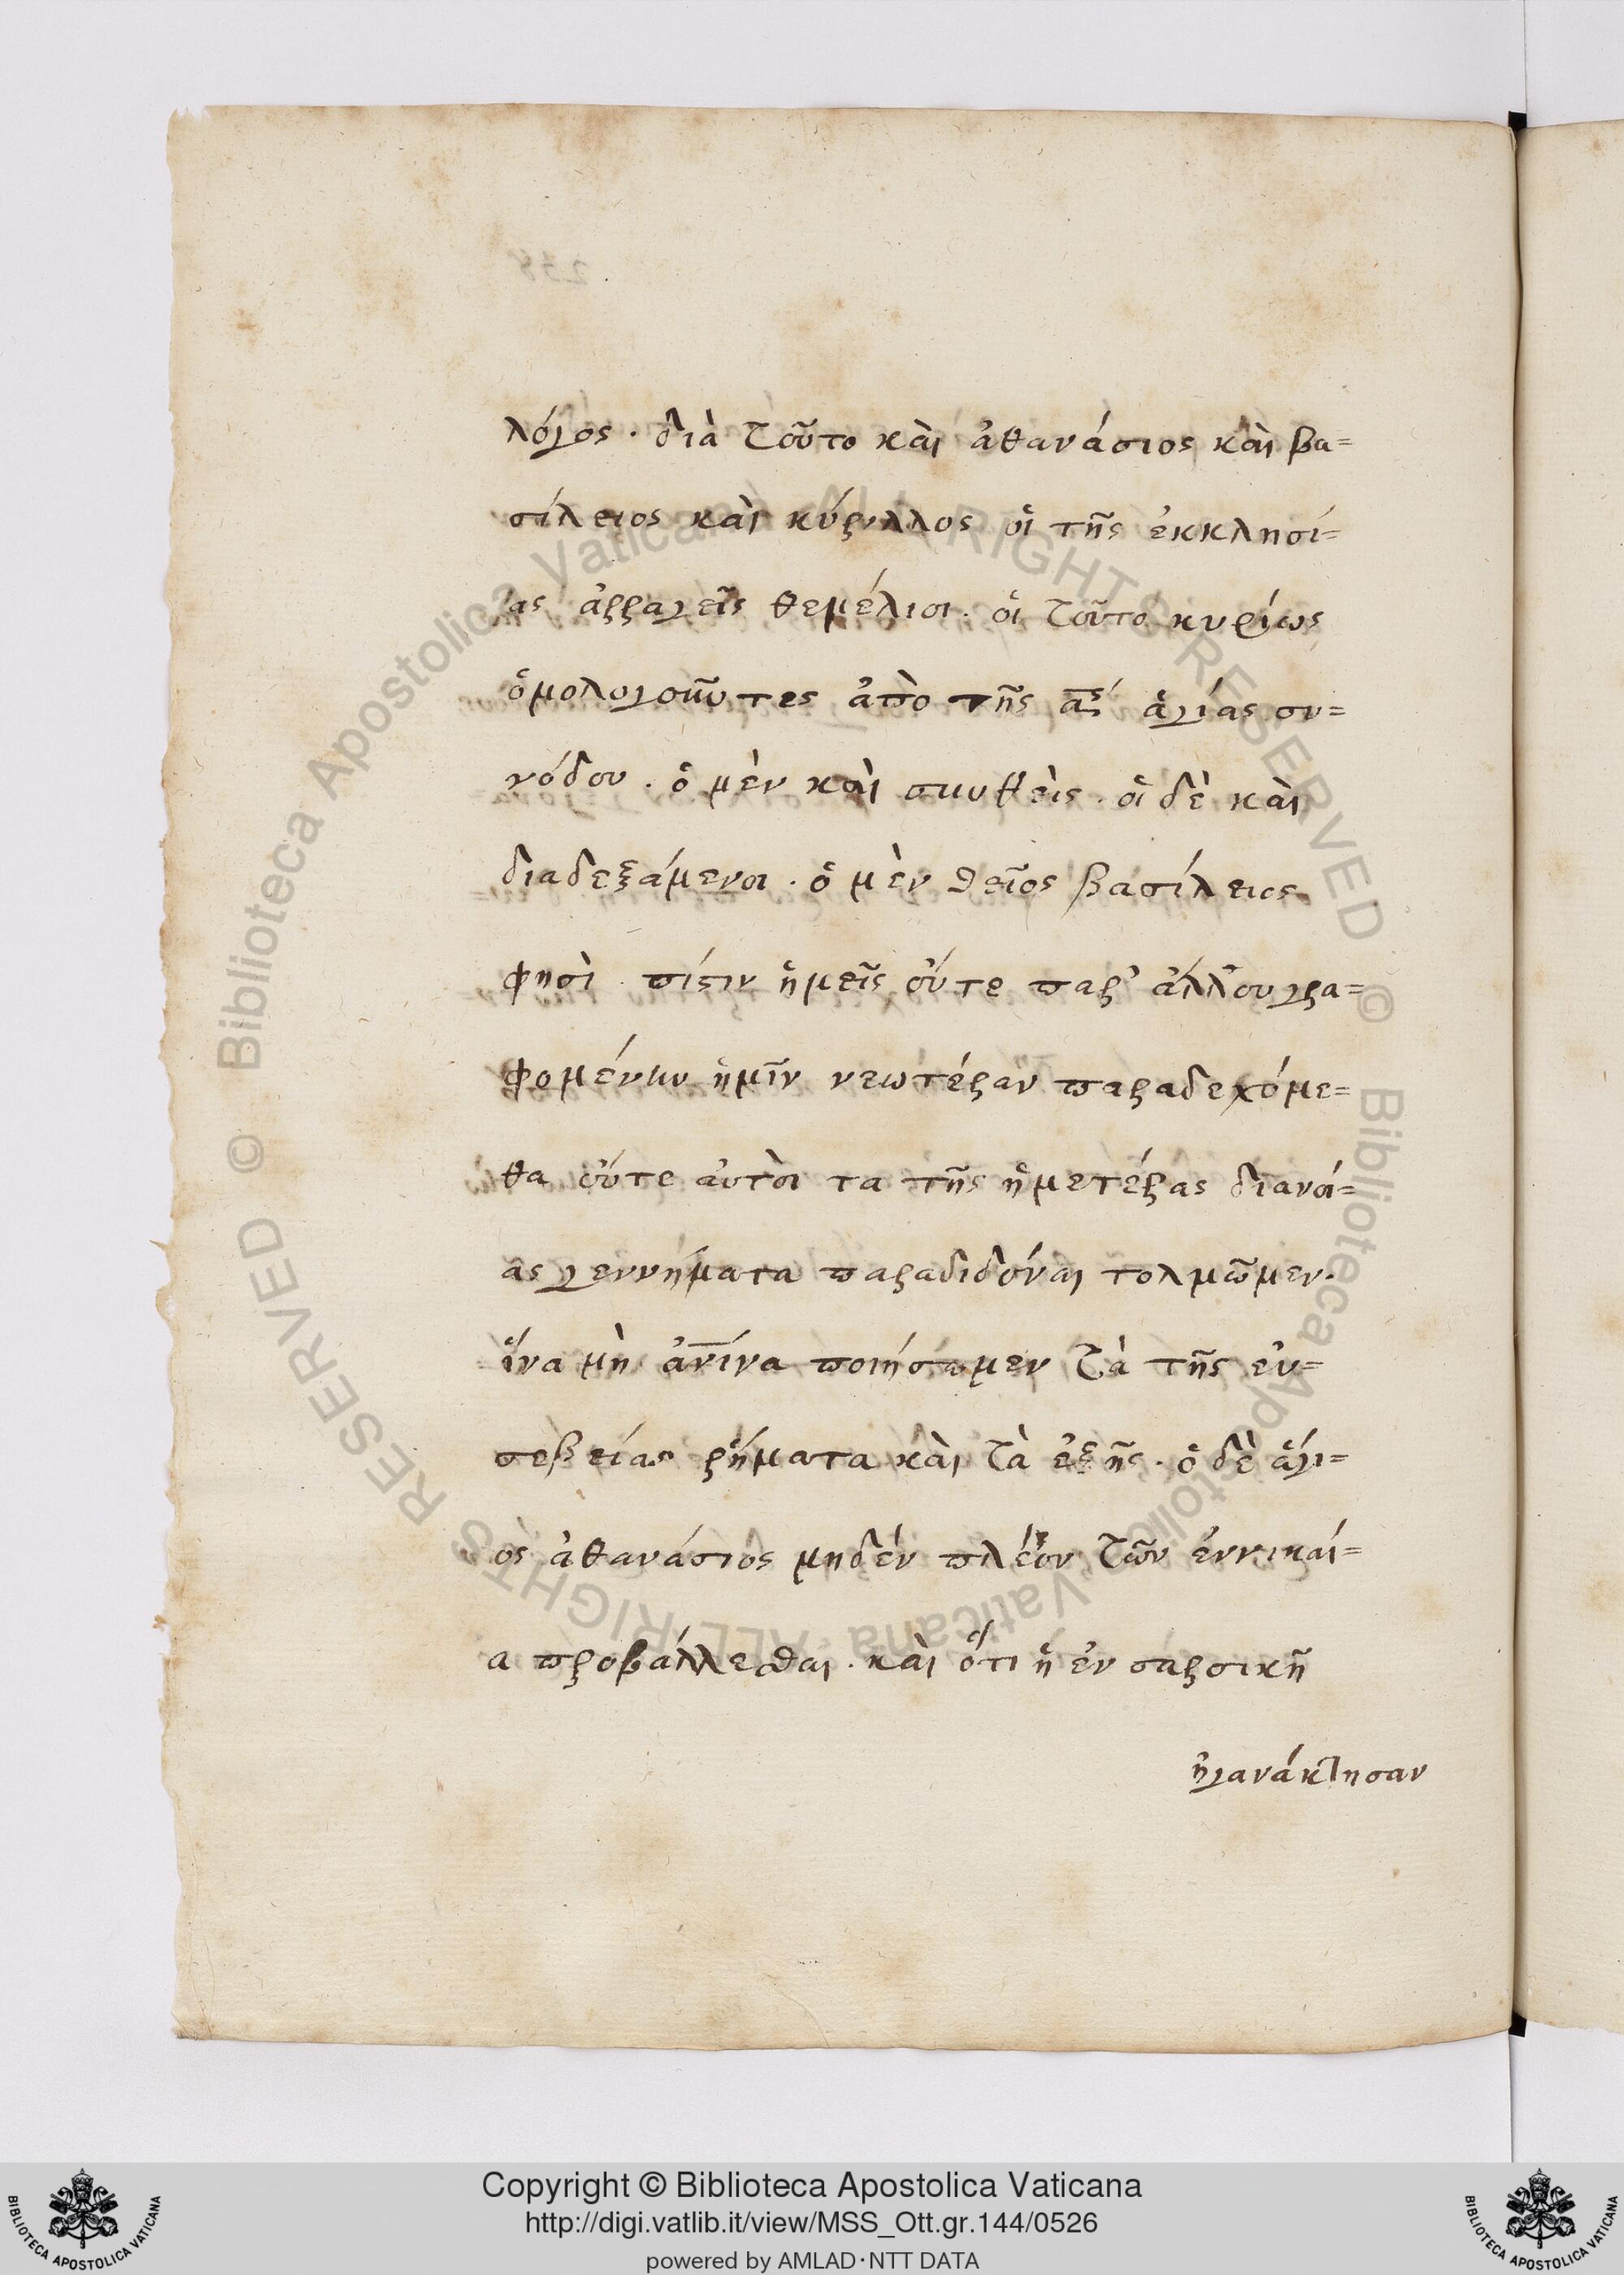 λόγος · διὰ τοῦτο καὶ ἀθανάσιος καὶ βα=
σίλειος καὶ κύριλλος οἱ τῆς ἐκκλησί=
ας ἀρραγεῖς θεμέλιοι · οἱ τοῦτο κυρίως
ὁμολογοῦντες ἀπὸ τῆς ἁγίας συ=
νόδου · ὁ μὲν καὶ · οἱ δὲ καὶ
διαδεξάμενοι · ὁ μὲν θεῖος βασίλειος
φησὶ · πίστιν ἡμεῖς οὔτε παρ' ἄλλου γρα=
φομένην ἡμῖν νεωτέραν παραδεχόμε=
θα οὔτε αὐτοὶ τα τῆς ἡμετέρας διανοί=
ας γεννήματα παραδιδόναι τολμῶμεν ·
ἵνα μὴ ἀν̅ίνα ποιήσωμεν τὰ τῆς εὐ=
σεβείας ῥήματα καὶ τὰ ἑξῆς · ὁ δὲ ἅγι=
ος ἀθανάσιος μηδέν πλέον τῶν ἐννικαί=
α προβάλλεσθαι · καὶ ὅτι ἡ ἐν σαρσικῇ
ἠγανάκτησαν
238
© Biblioteca Apostolica Vaticana ALL RIGHTS RESERVED © Biblioteca Apostolica Vaticana ALL RIGHTS RESERVED
Copyright © Biblioteca Apostolica Vaticana
http://digi.vatlib.it/view/MSS_Ott.gr.144/0526
powered by AMLAD·NTT DATA
BIBLIOTECA APOSTOLICA VATICANA
BIBLIOTECA APOSTOLICA VATICANA